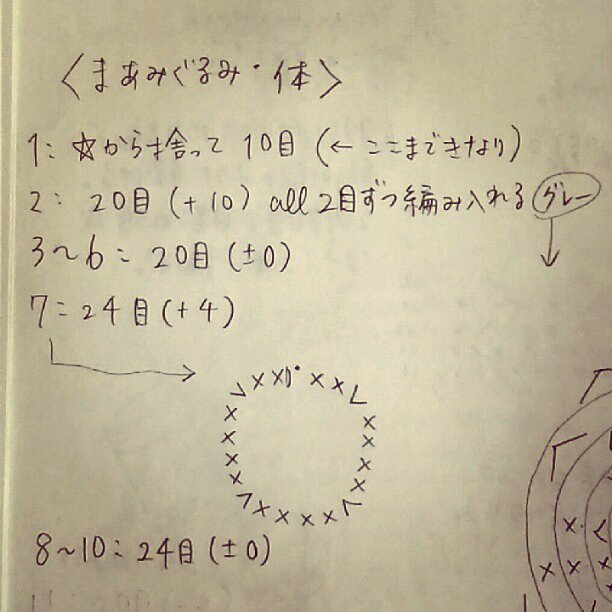 〈まあみぐるみ・体〉
1: ☆から拾って 10目 (← ここまできなり)
2: 20目 (+10) all 2目ずつ編み入れる グレー
3〜6: 20目 (±0)
7: 24目 (+4)
8〜10: 24目 (±0)